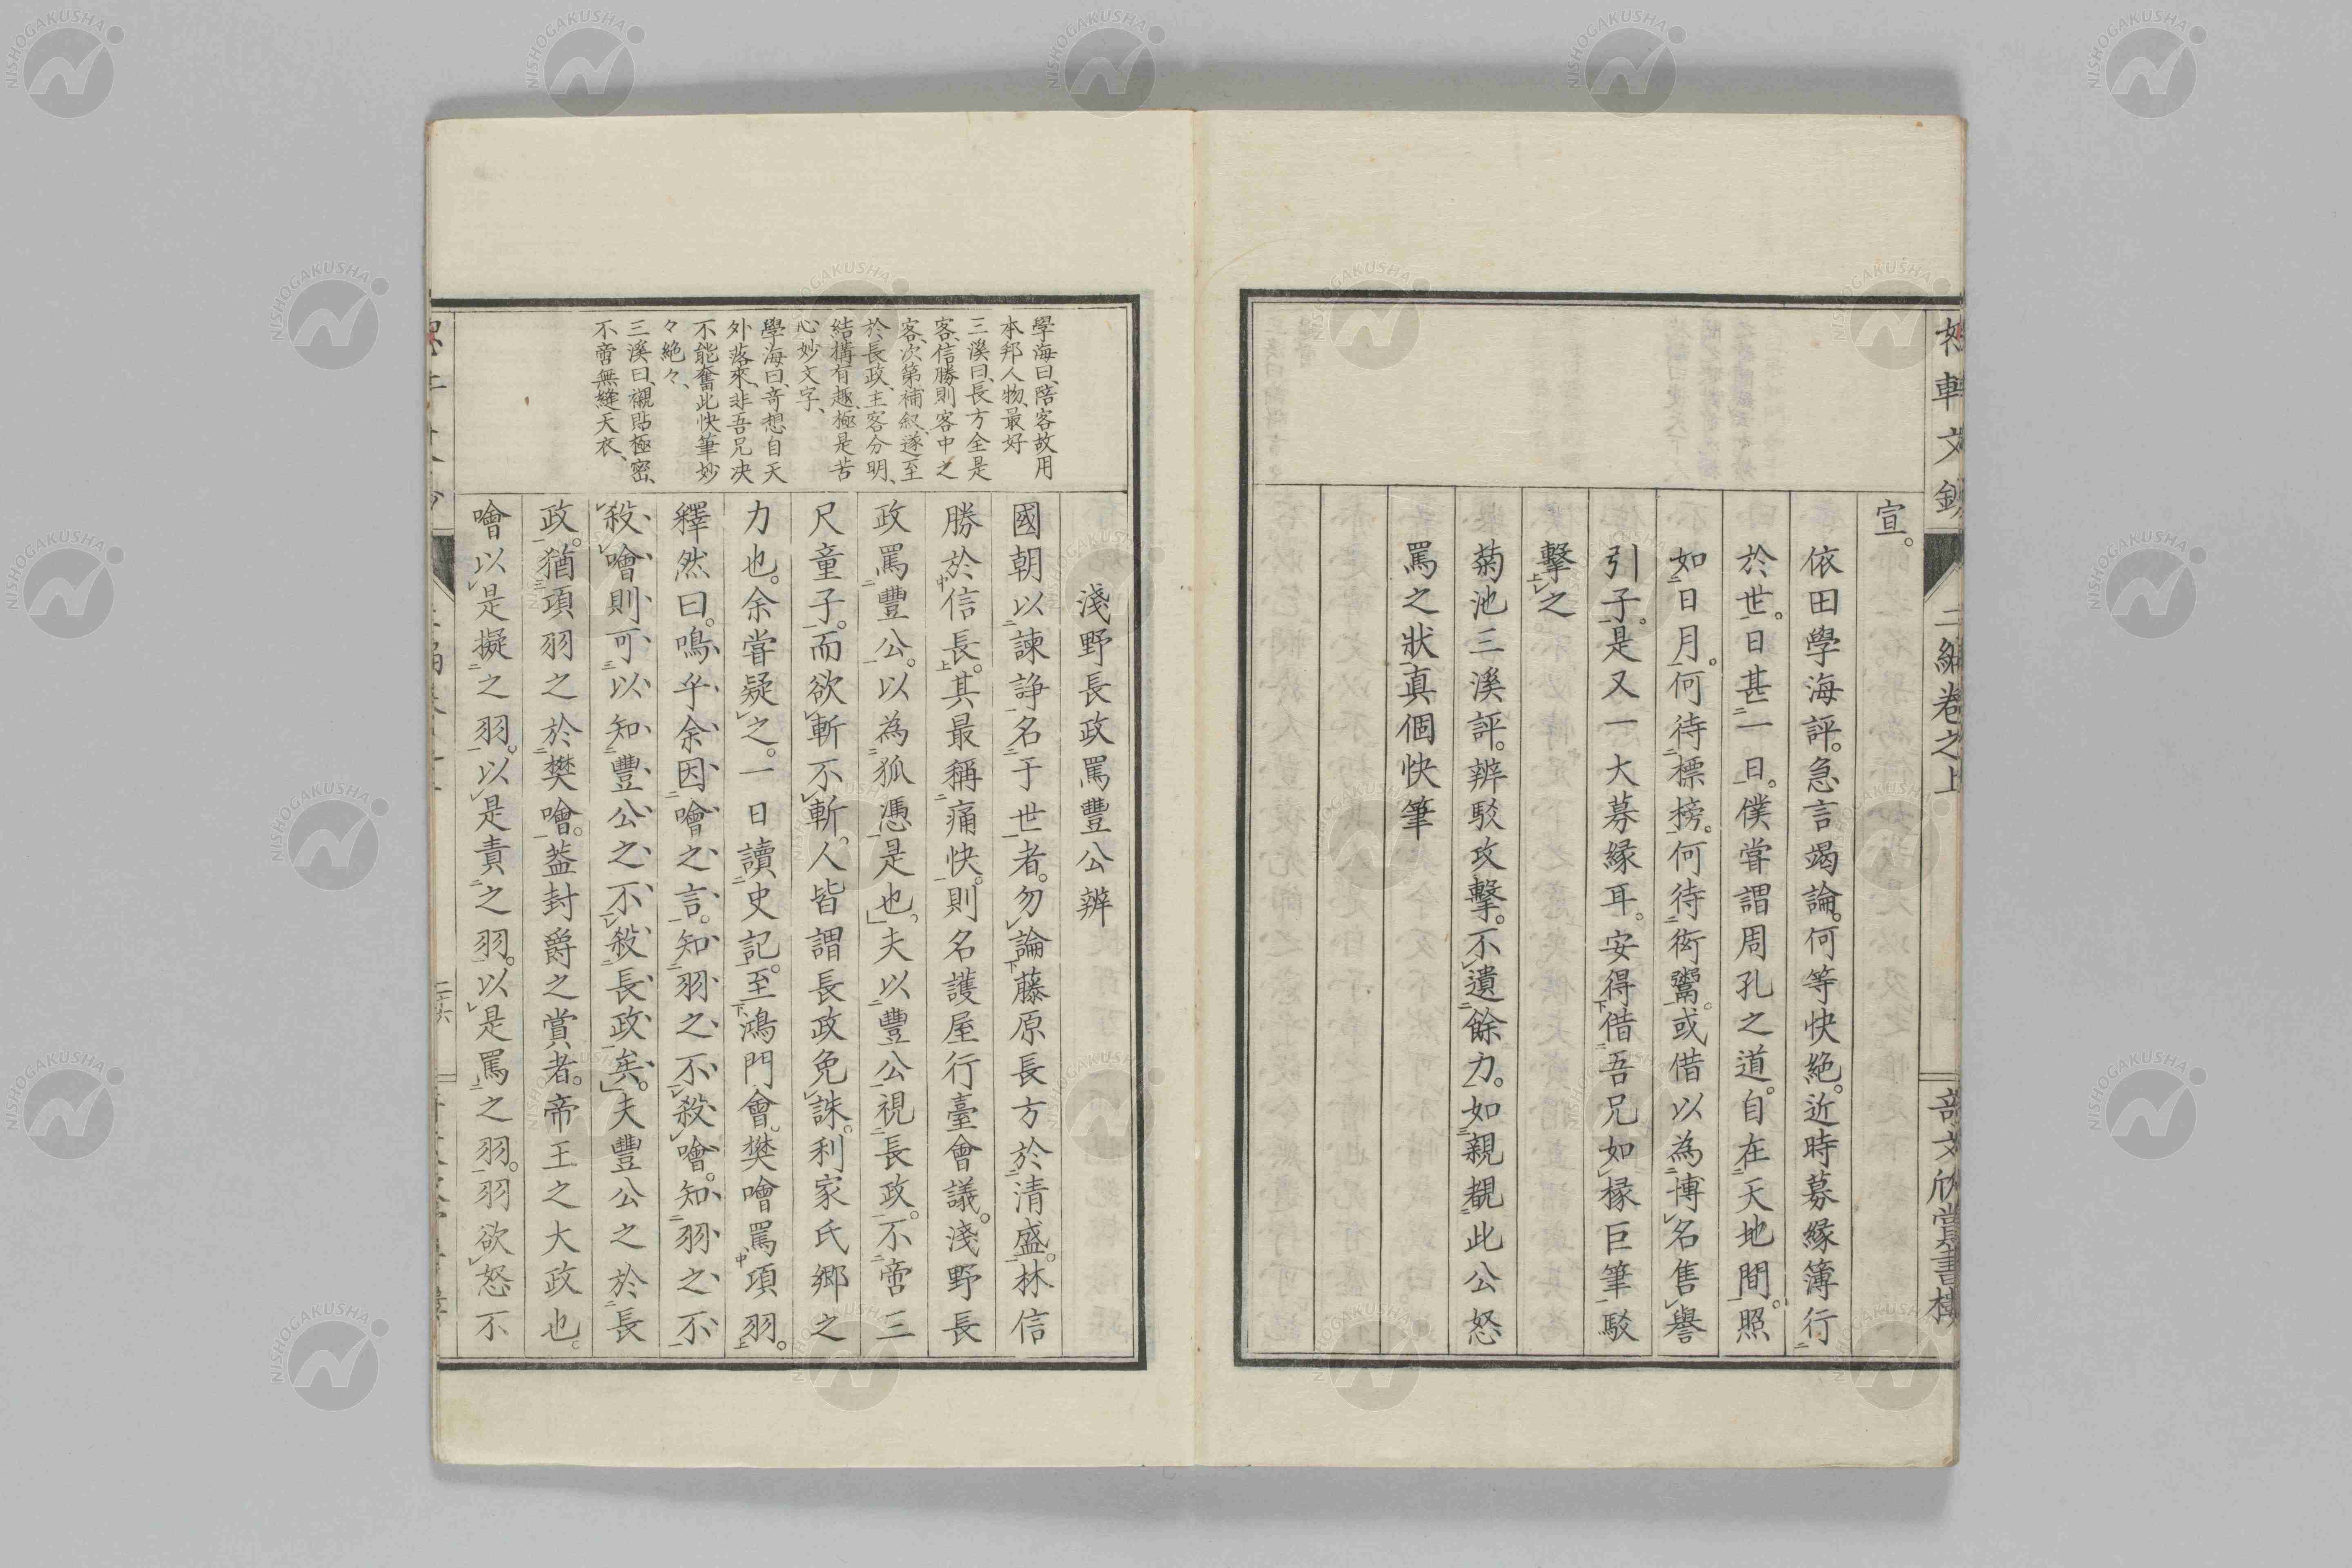 二編卷之上
宣。
依田學海評。急言竭論。何等快絕。近時募緣簿行
於世。日甚一日。僕嘗謂周孔之道。自在天地間。照
如日月。何待標榜。何待衒鬻。或借以為博名售譽
引子。是又一大募緣耳。安得借吾兄如椽巨筆駁
擊之
菊池三溪評。辨駁攻擊。不遺餘力。如親覩此公怒
罵之狀真個快筆
學海曰、陪客故用
本邦人物、最好
三溪曰、長方全是
客、信勝則客中之
客、次第補叙、遂至
於長政、主客分明、
結構有趣、極是苦
心妙文字、
學海曰、奇想自天
外落來、非吾兄决
不能奮此快筆妙
々絕々、
三溪曰、襯貼極密、
不啻無縫天衣、
淺野長政罵豐公辨
國朝以諫諍名于世者。勿論藤原長方於清盛。林信
勝於信長。其最稱痛快。則名護屋行臺會議。淺野長
政罵豐公。以為狐憑是也。夫以豐公視長政。不啻三
尺童子。而欲斬不斬。人皆謂長政免誅。利家氏鄉之
力也。余嘗疑之。一日讀史記。至鴻門會、樊噲罵項羽。
釋然曰。嗚乎余因噲之言。知羽之不殺噲。知羽之不
殺噲則可以知豐公之不殺長政矣。夫豐公之於長
政。猶項羽之於樊噲。蓋封爵之賞者。帝王之大政也。
噲以是擬之羽。以是責之羽。以是罵之羽。羽欲怒不